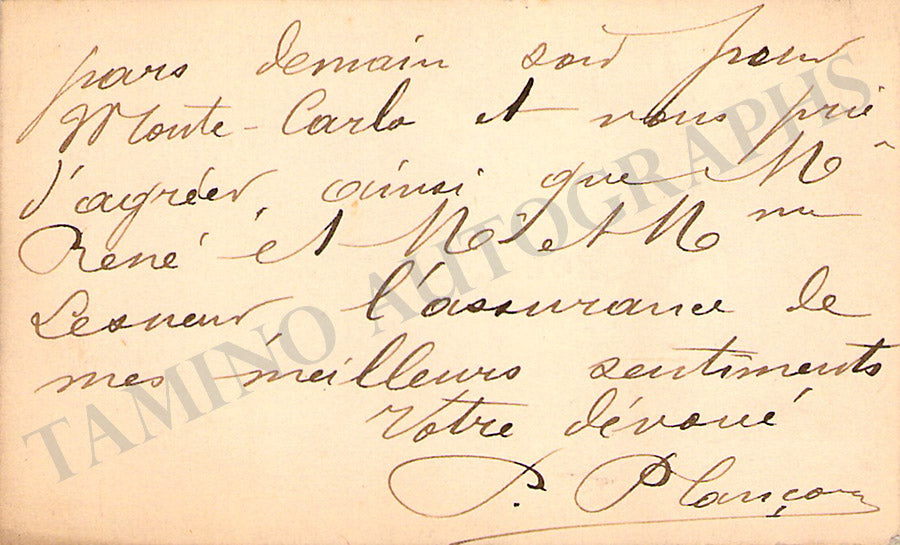 pars demain soir pour
Monte-Carlo et vous prie
d'agréer, ainsi que Mr
René et Mr et Mme
Lesueur, l'assurance de
mes meilleurs sentiments
Votre dévoué
P. Plançon
TAMINO AUTOGRAPHS